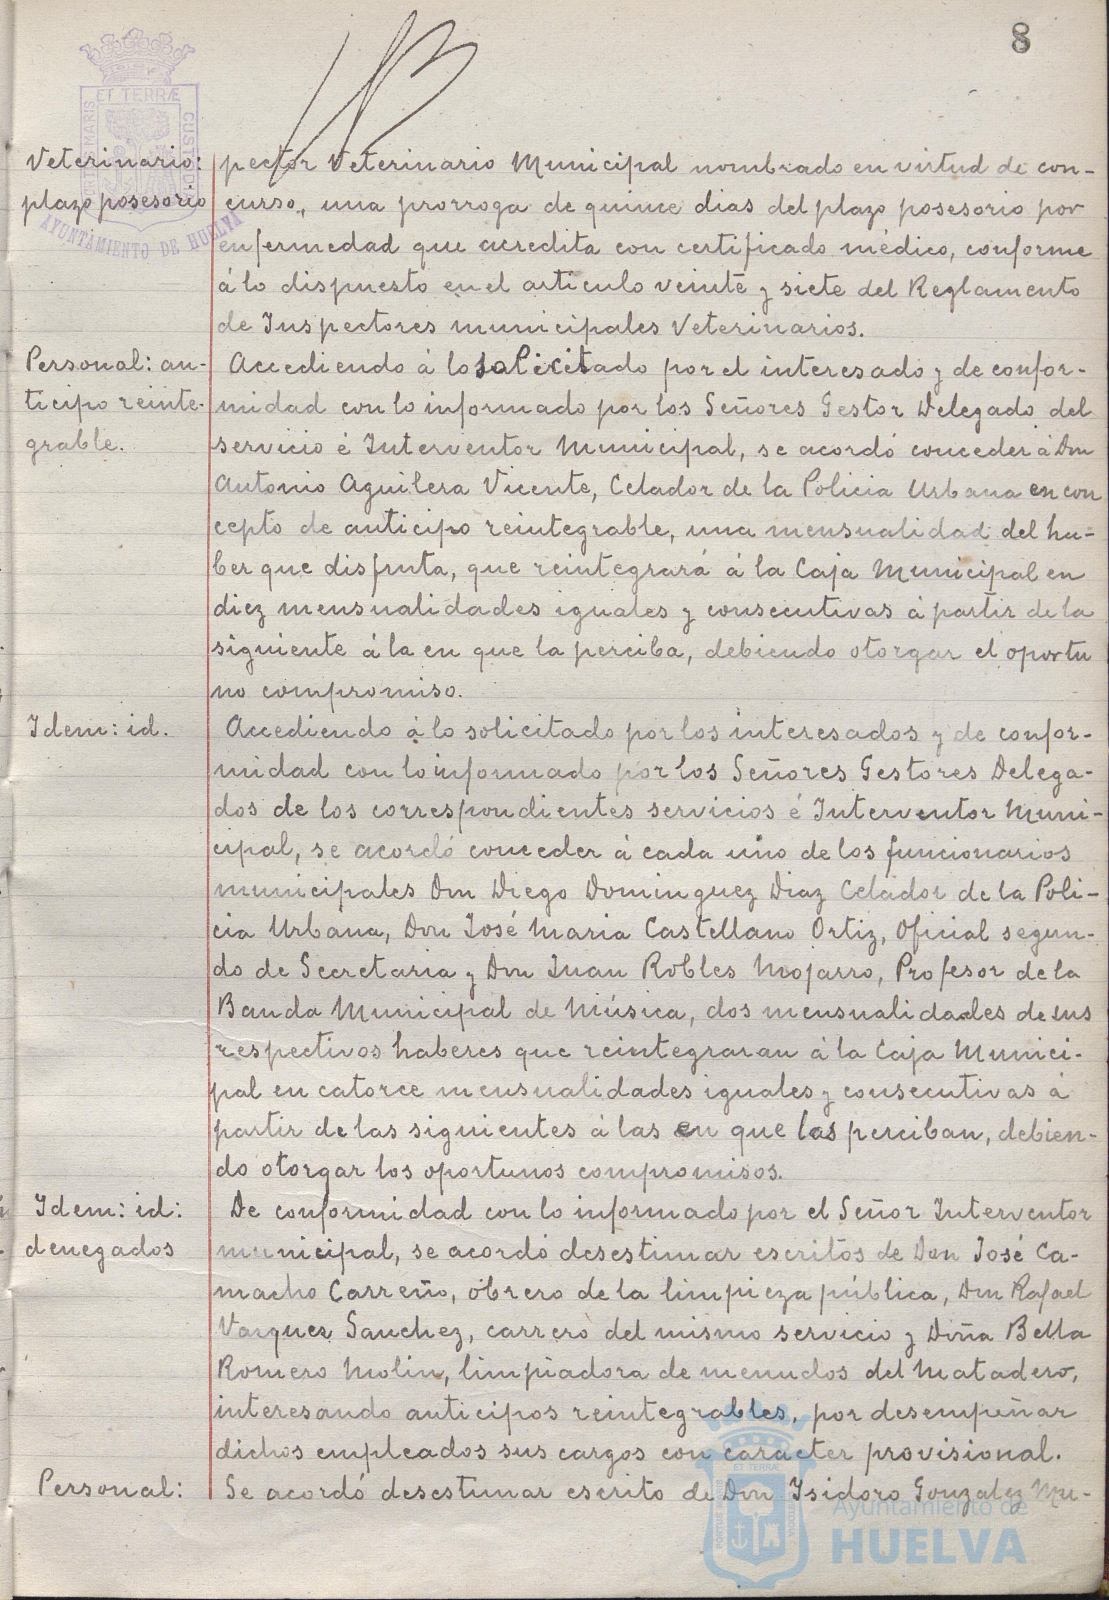 8
ET TERRÆ
PORTUS MARIS
CUSTODIA
AYUNTAMIENTO DE HUELVA
Veterinario:
plazo posesorio
pector Veterinario Municipal nombrado en virtud de con-
curso, una prorroga de quince dias del plazo posesorio por
enfermedad que acredita con certificado médico, conforme
á lo dispuesto en el articulo veinte y siete del Reglamento
de Inspectores municipales Veterinarios.
Personal: an-
ticipo reinte-
grable.
Accediendo á lo solicitado por el interesado y de confor-
midad con lo informado por los Señores Gestor Delegado del
servicio é Interventor Municipal, se acordó conceder á Don
Antonio Aguilera Vicente, Celador de la Policia Urbana en con
cepto de anticipo reintegrable, una mensualidad del ha-
ber que disfruta, que reintegrará á la Caja Municipal en
diez mensualidades iguales y consecutivas á partir de la
siguiente á la en que la perciba, debiendo otorgar el oportu
no compromiso.
Idem: id.
Accediendo á lo solicitado por los interesados y de confor-
midad con lo informado por los Señores Gestores Delega-
dos de los correspondientes servicios é Interventor Muni-
cipal, se acordó conceder á cada uno de los funcionarios
municipales Don Diego Dominguez Diaz Celador de la Poli-
cia Urbana, Don José Maria Castellano Ortiz, Oficial segun-
do de Secretaria y Don Juan Robles Mojarro, Profesor de la
Banda Municipal de Música, dos mensualidades de sus
respectivos haberes que reintegraran á la Caja Munici-
pal en catorce mensualidades iguales y consecutivas á
partir de las siguientes á las en que las perciban, debien-
do otorgar los oportunos compromisos.
Idem: id:
denegados
De conformidad con lo informado por el Señor Interventor
municipal, se acordó desestimar escritos de Don José Ca-
macho Carreño, obrero de la limpieza pública, Don Rafael
Vazquez Sanchez, carrero del mismo servicio y Doña Bella
Romero Molin, limpiadora de menudos del Matadero,
interesando anticipos reintegrables, por desempeñar
dichos empleados sus cargos con caracter provisional.
Personal:
Se acordó desestimar escrito de Don Isidoro Gonzalez Mu-
Ayuntamiento de
HUELVA